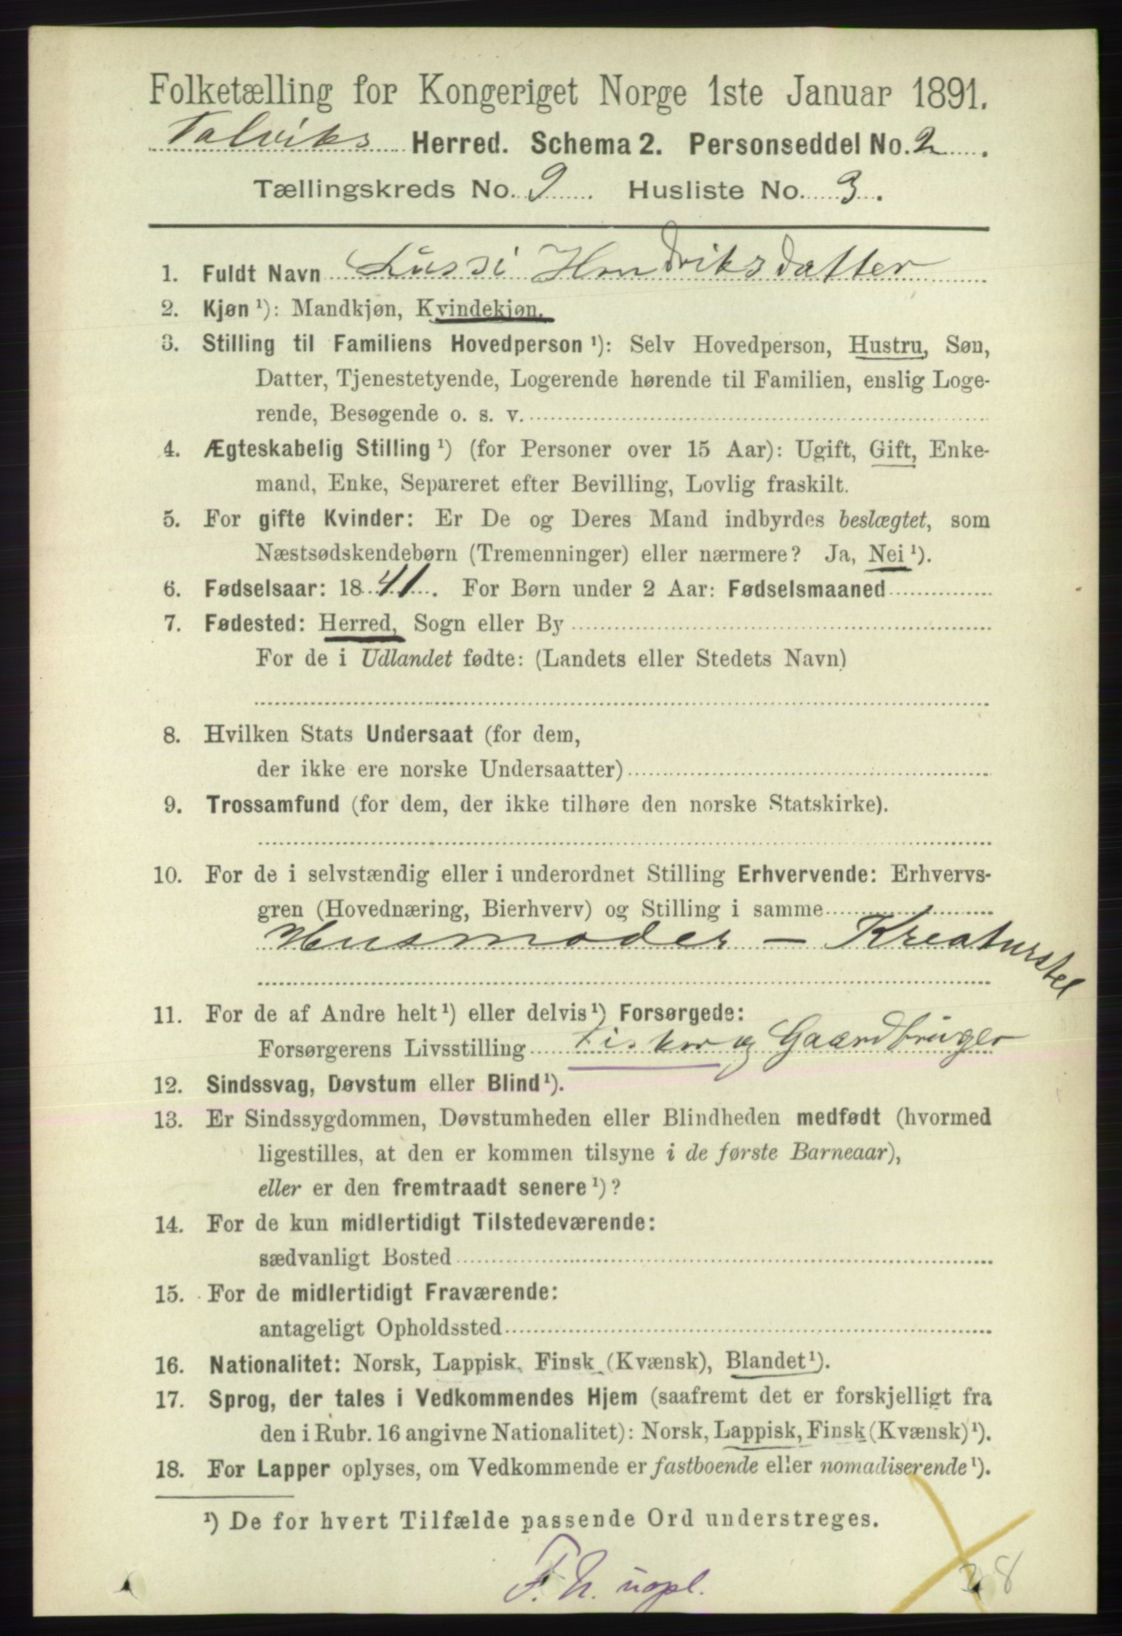 Folketælling for Kongeriget Norge 1ste Januar 1891.
Talviks Herred. Schema 2. Personseddel No. 2.
Tællingskreds No. 9. Husliste No. 3.
1. Fuldt Navn Lussi Hendriksdatter
2. Kjøn ¹): Mandkjøn, Kvindekjøn.
3. Stilling til Familiens Hovedperson ¹): Selv Hovedperson, Hustru, Søn,
Datter, Tjenestetyende, Logerende hørende til Familien, enslig Loge-
rende, Besøgende o. s. v.
4. Ægteskabelig Stilling ¹) (for Personer over 15 Aar): Ugift, Gift, Enke-
mand, Enke, Separeret efter Bevilling, Lovlig fraskilt.
5. For gifte Kvinder: Er De og Deres Mand indbyrdes beslægtet, som
Næstsødskendebørn (Tremenninger) eller nærmere? Ja, Nei ¹).
6. Fødselsaar: 1841. For Børn under 2 Aar: Fødselsmaaned
7. Fødested: Herred, Sogn eller By
For de i Udlandet fødte: (Landets eller Stedets Navn)
8. Hvilken Stats Undersaat (for dem,
der ikke ere norske Undersaatter)
9. Trossamfund (for dem, der ikke tilhøre den norske Statskirke).
10. For de i selvstændig eller i underordnet Stilling Erhvervende: Erhvervs-
gren (Hovednæring, Bierhverv) og Stilling i samme
Husmoder – Kreaturstel
11. For de af Andre helt ¹) eller delvis ¹) Forsørgede:
Forsørgerens Livsstilling Fisker og Gaardbruger
12. Sindssvag, Døvstum eller Blind ¹).
13. Er Sindssygdommen, Døvstumheden eller Blindheden medfødt (hvormed
ligestilles, at den er kommen tilsyne i de første Barneaar),
eller er den fremtraadt senere ¹)?
14. For de kun midlertidigt Tilstedeværende:
sædvanligt Bosted
15. For de midlertidigt Fraværende:
antageligt Opholdssted
16. Nationalitet: Norsk, Lappisk, Finsk (Kvænsk), Blandet ¹).
17. Sprog, der tales i Vedkommendes Hjem (saafremt det er forskjelligt fra
den i Rubr. 16 angivne Nationalitet): Norsk, Lappisk, Finsk (Kvænsk) ¹).
18. For Lapper oplyses, om Vedkommende er fastboende eller nomadiserende ¹).
¹) De for hvert Tilfælde passende Ord understreges.
F. N. uopl.